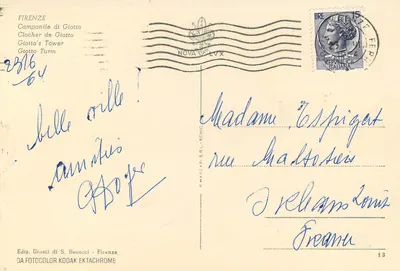 FIRENZE
Campanile di Giotto
Clocher de Giotto
Giotto's Tower
Giotto Turm
2316
64
belle ville !
amitiés
Madame Espigat
rue Maltotiere
Orleans Loiret
France
Ediz. Giusti di S. Becocci - Firenze
DA FOTOCOLOR KODAK EKTACHROME
13